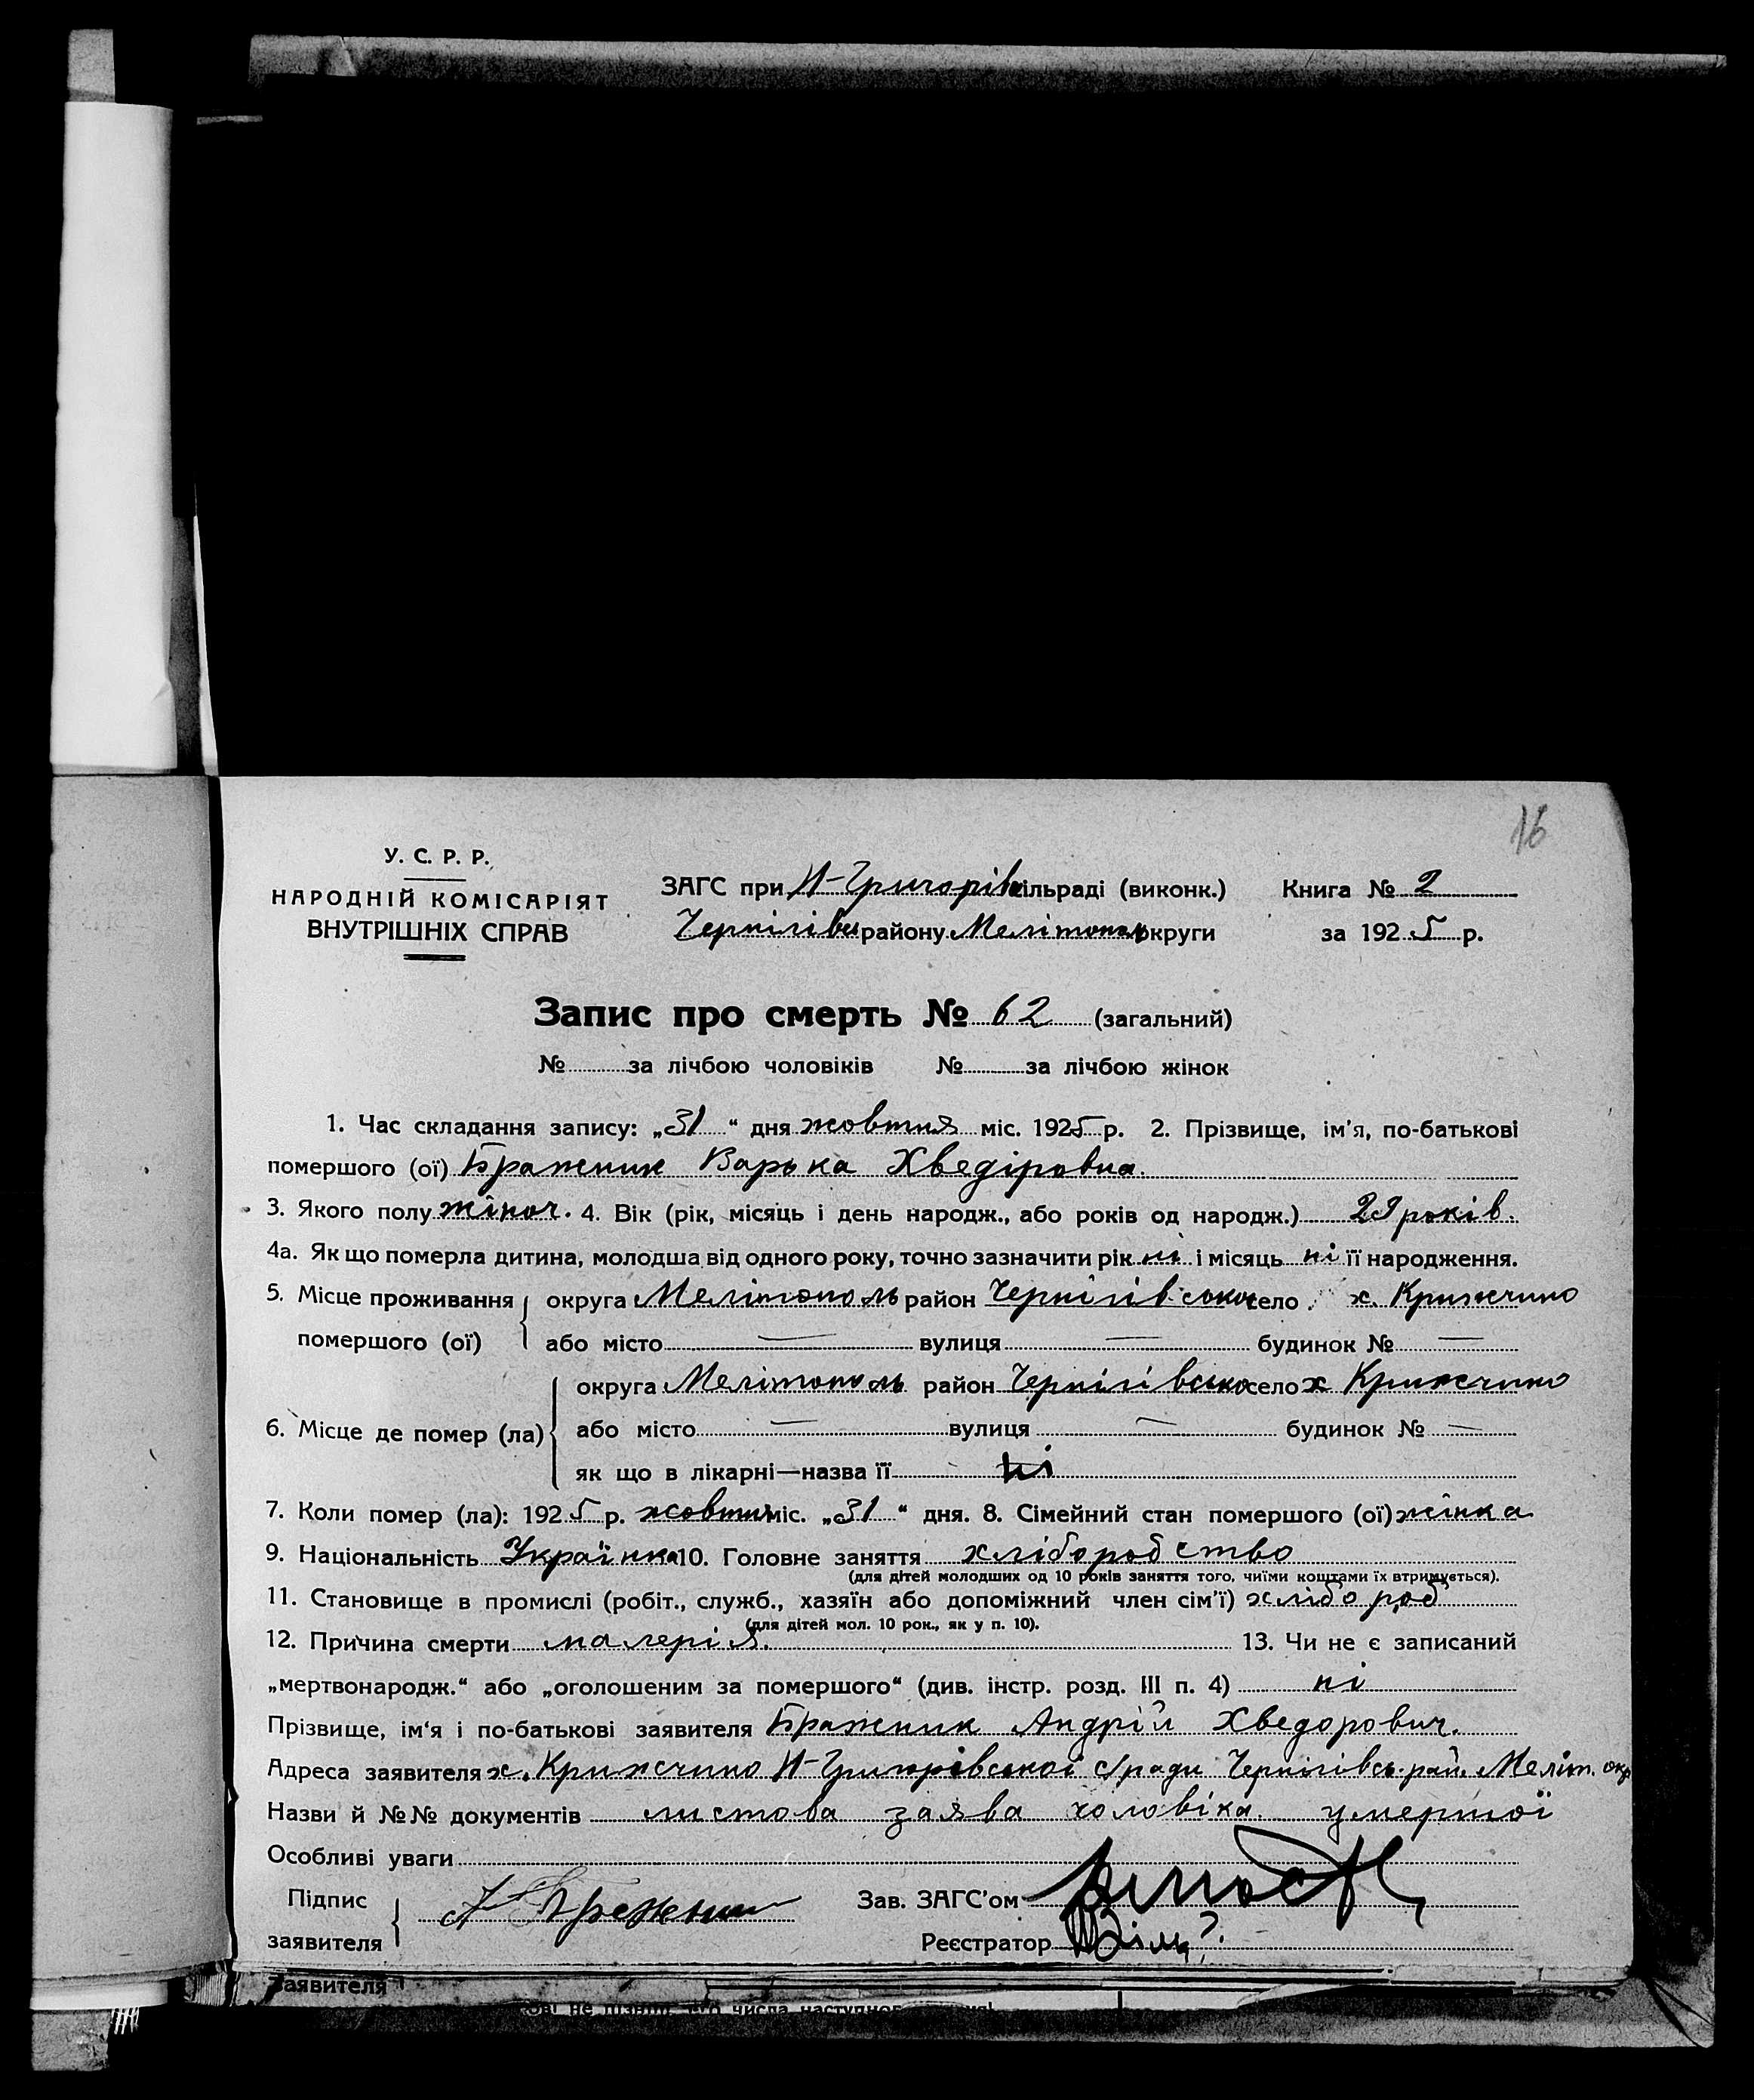 16
У. С. Р. Р.
НАРОДНІЙ КОМІСАРІЯТ
ВНУТРІШНІХ СПРАВ
ЗАГС при Н-Григорів сільраді (виконк.) Книга № 2
Чернігівськ району Мелітополь округи за 1925 р.
Запис про смерть № 62 (загальний)
№ за лічбою чоловіків № за лічбою жінок
1. Час складання запису: „31“ дня жовтня міс. 1925 р. 2. Прізвище, ім'я, по-батькові
помершого (ої) Бражник Варька Хведіровна.
3. Якого полу жіноч. 4. Вік (рік, місяць і день народж., або років од народж.) 29 років.
4а. Як що померла дитина, молодша від одного року, точно зазначити рік ні і місяць ні її народження.
5. Місце проживання округа Мелітополь район Чернігівсько село х. Крижчино
помершого (ої) або місто — вулиця — будинок № —
округа Мелітополь район Чернігівсько село х Крижчино
6. Місце де помер (ла) або місто — вулиця — будинок № —
як що в лікарні—назва її ні
7. Коли помер (ла): 1925 р. жовтня міс. „31“ дня. 8. Сімейний стан помершого (ої) жінка
9. Національність Українка 10. Головне заняття хліборобство
(для дітей молодших од 10 років заняття того, чиїми коштами їх втримується).
11. Становище в промислі (робіт., служб., хазяїн або допоміжний член сім'ї) хлібороб
(для дітей мол. 10 рок., як у п. 10).
12. Причина смерти малерія. 13. Чи не є записаний
„мертвонародж.“ або „оголошеним за помершого“ (див. інстр. розд. III п. 4) ні
Прізвище, ім'я і по-батькові заявителя Бражник Андрій Хведорович.
Адреса заявителя х. Крижчино Н-Григорівської с/ради Чернігівсь. рай. Меліт. окр
Назви й №№ документів листова заява чоловіка умершої
Особливі уваги
Підпис А Бражник Зав. ЗАГС'ом
заявителя Реєстратор
Заявителя